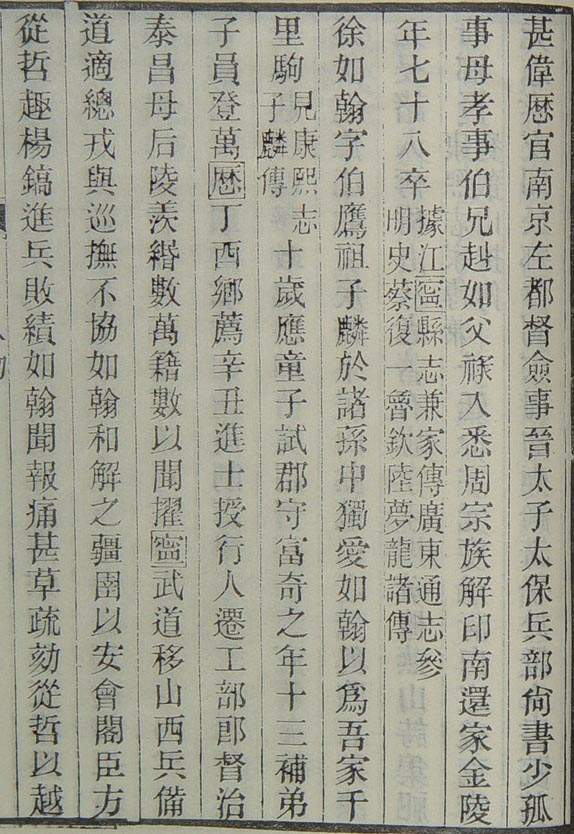 甚偉厯官南京左都督僉事晉太子太保兵部尙書少孤
事母孝事伯兄赲如父祿入悉周宗族解印南還家金陵
年七十八卒據江寍縣志兼家傳廣東通志參
明史蔡復一魯欽陸夢龍諸傳
徐如翰字伯鷹祖子麟於諸孫中獨愛如翰以爲吾家千
里駒見康熙志
子麟傳十歲應童子試郡守富奇之年十三補弟
子員登萬厯丁酉鄉薦辛丑進士授行人遷工部郎督治
泰昌母后陵羨緡數萬籍數以聞擢寍武道移山西兵備
道適總戎與巡撫不協如翰和解之疆圉以安會閣臣方
從哲趣楊鎬進兵敗績如翰聞報痛甚草疏劾從哲以越